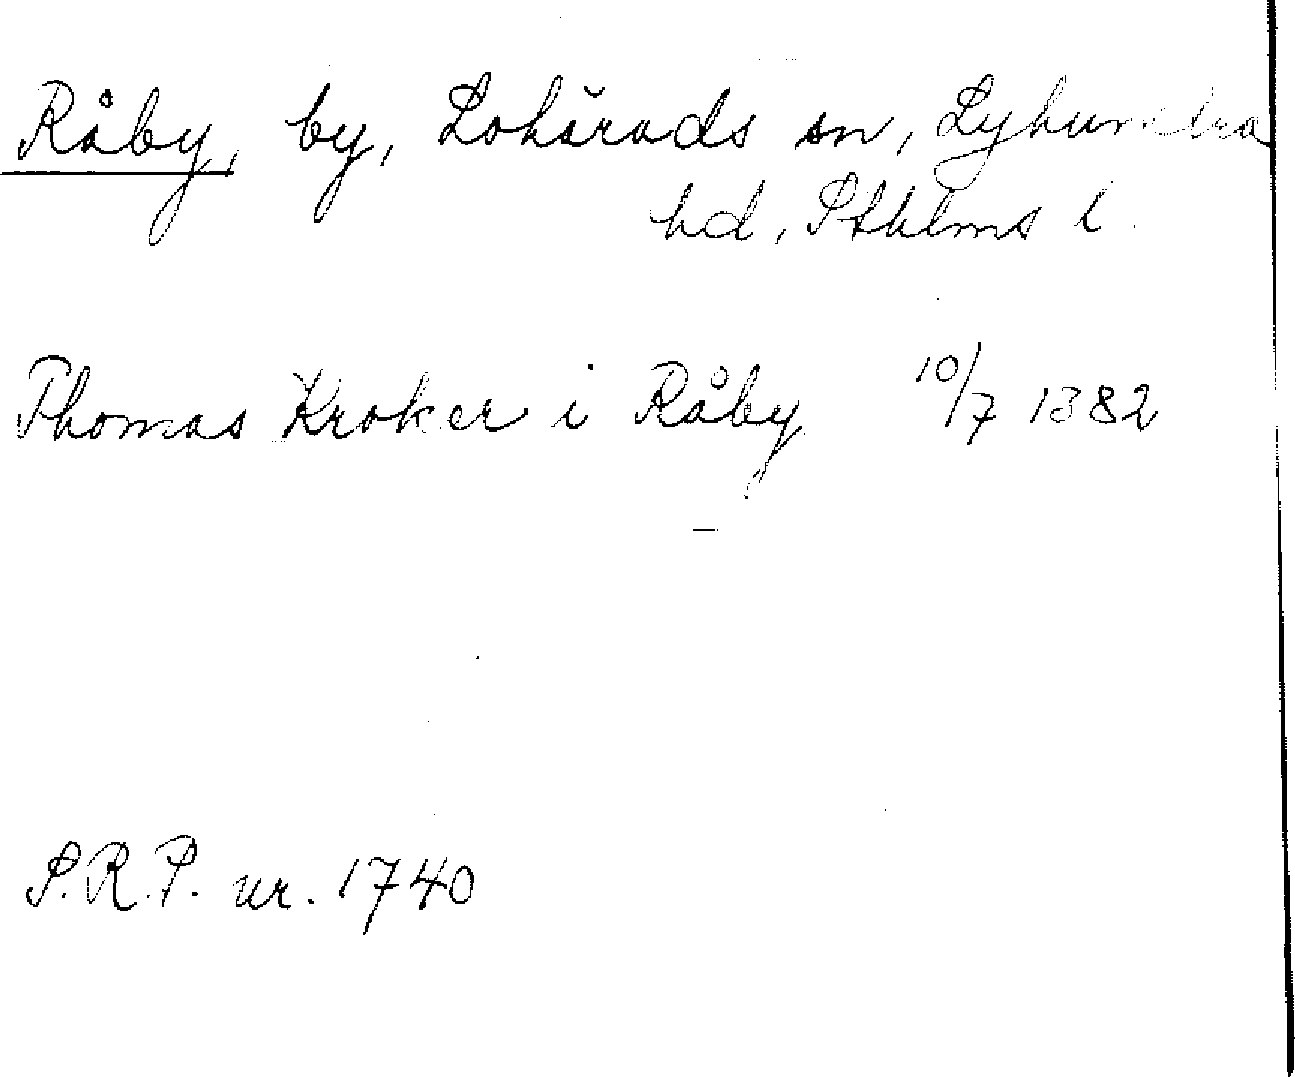 Råby, by, Lohärads sn, Lyhundra
hd, Sthlms l.
Thomas Kroker i Råby 10/7 1382
S.R.P. nr. 1740